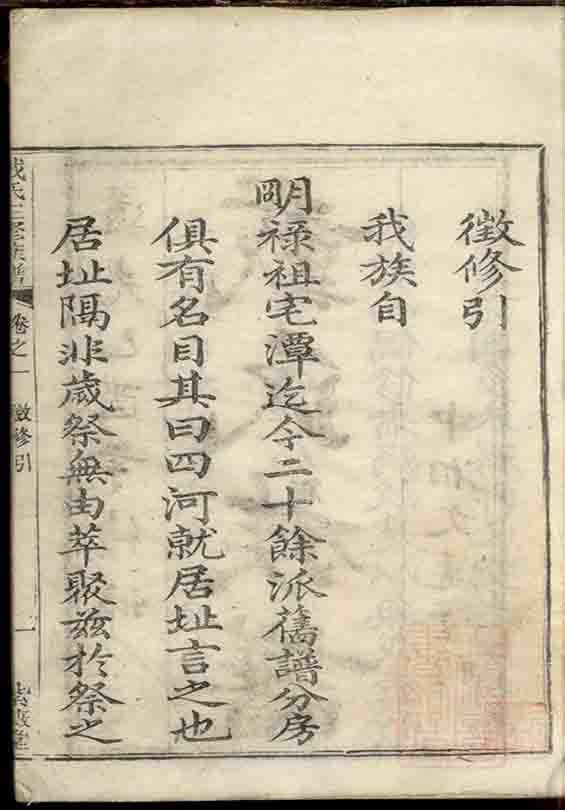 徵修引
我族自
明祿祖宅潭迄今二十餘派舊譜分房
俱有名目其曰四河就居址言之也
居址隔非歲祭無由萃聚茲於祭之
氏三修族譜 卷之一 徵修引 一 敦堂